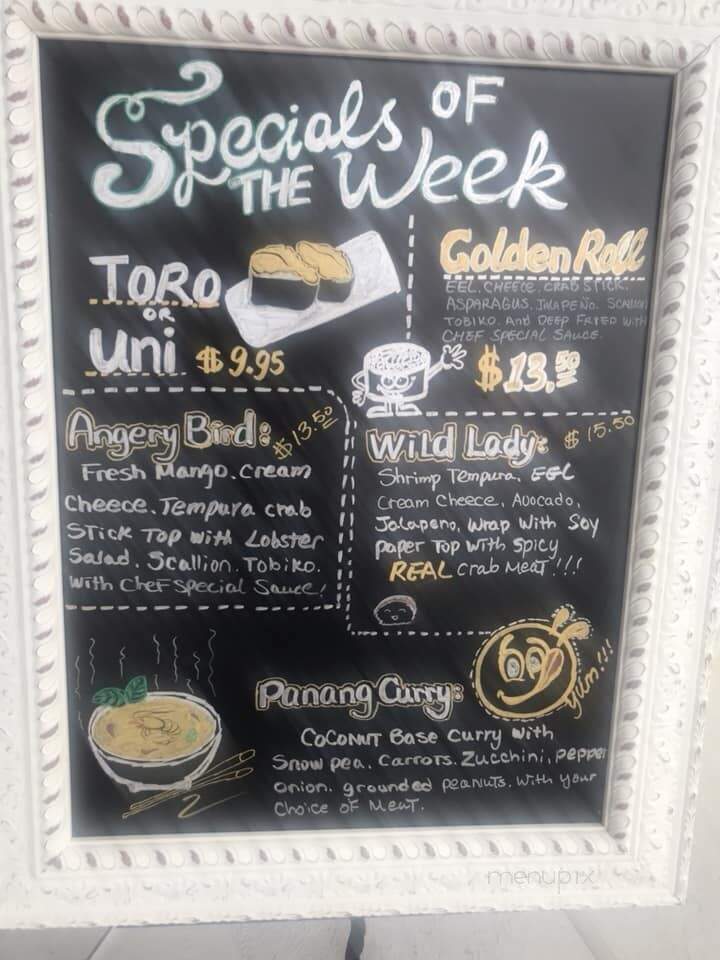 Specials OF
THE Week
TORO
OR
Uni $9.95
Golden Roll
EEL. CHEECE. CRAB STICK.
ASPARAGUS. JALAPENO. SCALLION
TOBIKO. And DEEP FRIED WITH
CHEF SPECIAL SAUCE.
$13.50
Angery Bird: $13.50
Fresh Mango. Cream
Cheece. Tempura crab
STICK TOP WITH Lobster
Salad. Scallion. Tobiko.
With CheF Special Sauce!
Wild Lady: $15.50
Shrimp Tempura, EEL
Cream Cheece, Avocado,
Jalapeno, Wrap With Soy
paper Top With Spicy
REAL Crab Meat!!!
Yum!!!
Panang Curry:
COCONUT Base Curry With
Snow pea. Carrots. Zucchini, pepper
Onion. grounded peanuts. With your
Choice OF Meat.
menupix